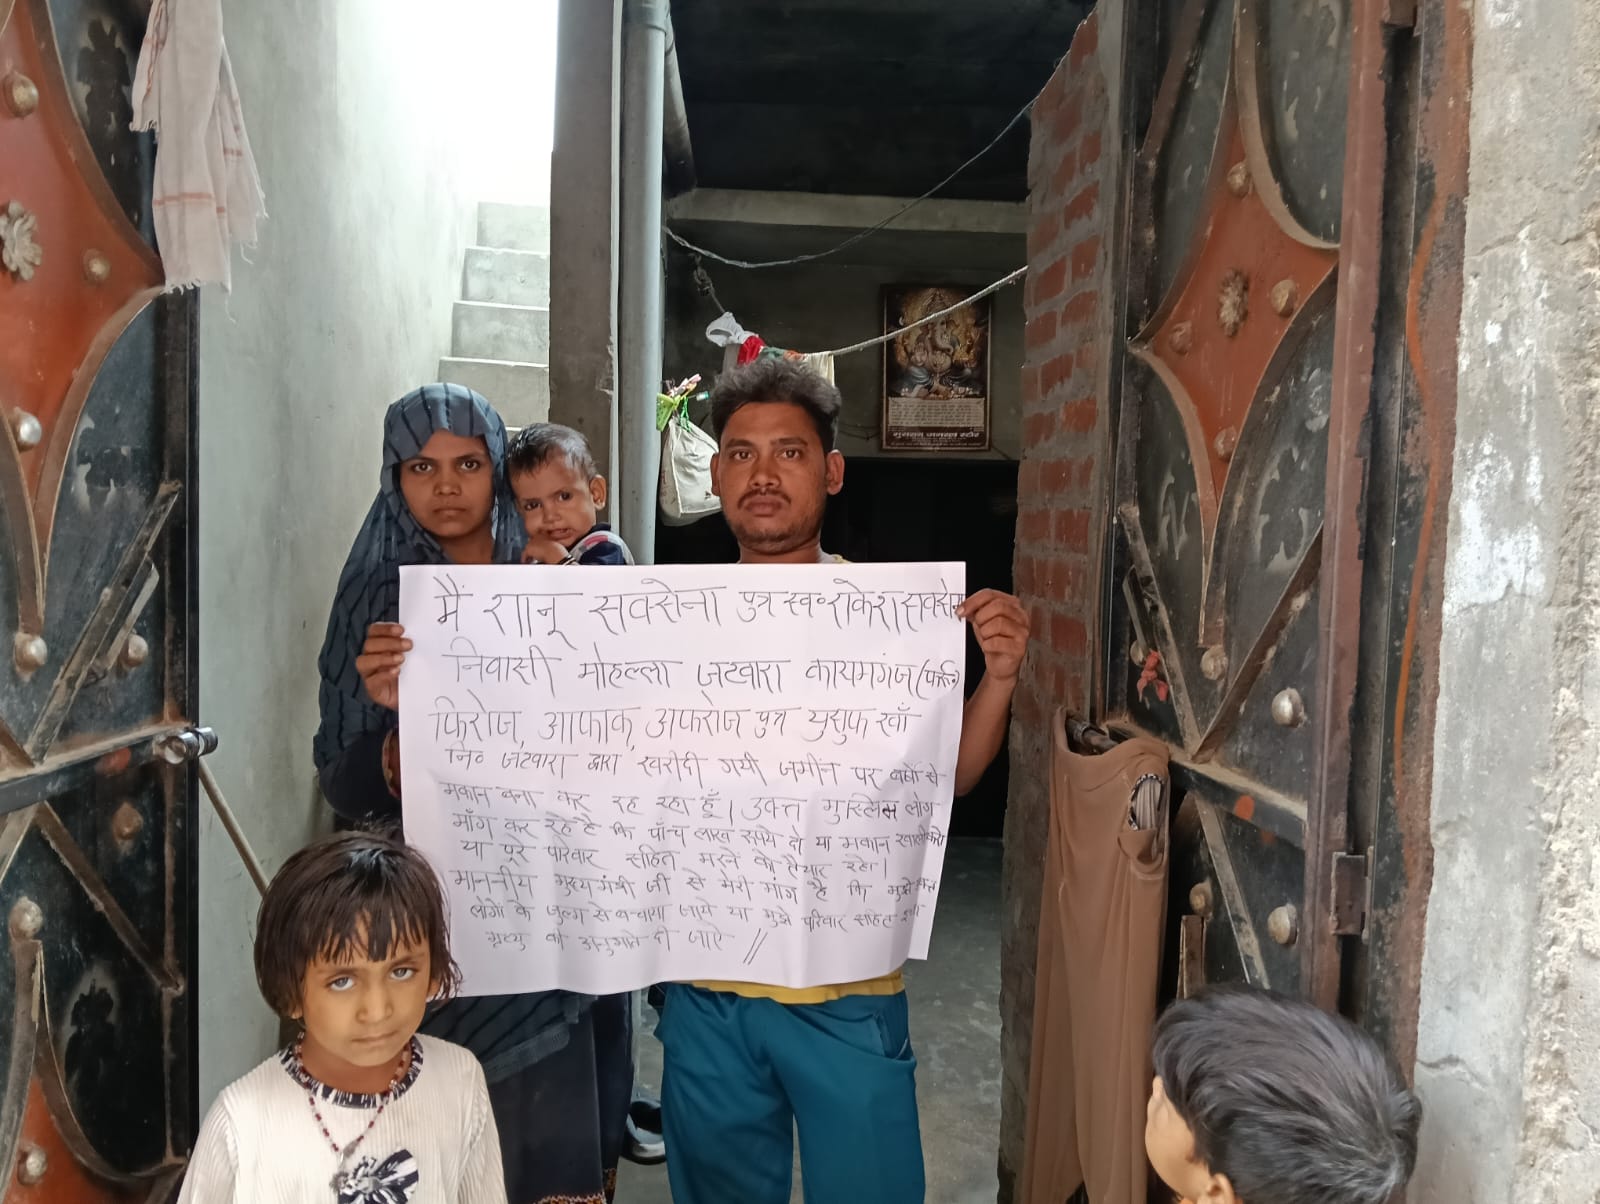 मैं शानू सक्सेना पुत्र स्व० राकेश सक्सेना
निवासी मोहल्ला जटवारा कायमगंज (फर्रु०)
फिरोज, आफाक, अफरोज पुत्र युसुफ खाँ
नि० जटवारा द्वारा खरीदी गयी जमीन पर वर्षो से
मकान बना कर रह रहा हूँ। उक्त मुस्लिम लोग
माँग कर रहे है कि पाँच लाख रुपये दो या मकान खाली करो
या पूरे परिवार सहित मरने को तैयार रहो।
माननीय मुख्यमंत्री जी से मेरी मांग है कि मुझे उक्त
लोगों के जुल्म से बचाया जाये या मुझे परिवार सहित
मृत्यु की अनुमति दी जाऐ //
जनरल स्टोर